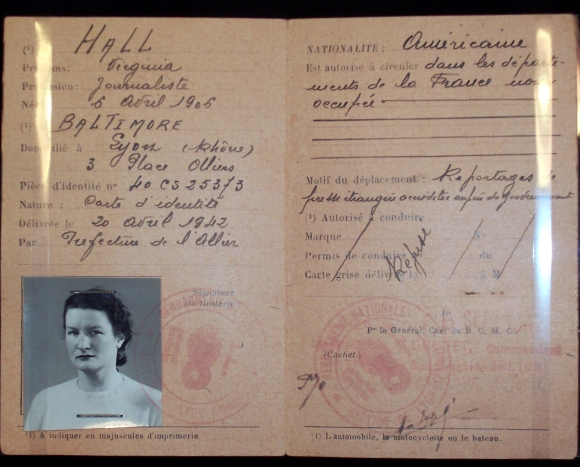 (¹) HALL
Prénoms: Virginia
Profession: Journaliste
Né 6 Avril 1906
(¹) BALTIMORE
Domicilié à Lyon (Rhône)
3 Place Ollier
Pièce d'identité n° 40 CS 25373
Nature : Carte d'identité
Délivrée le 20 Avril 1942
Par Préfecture de l'Allier
Signature
du titulaire
(1) A indiquer en majuscules d'imprimerie.
NATIONALITÉ : Américaine
Est autorisé à circuler dans les départe-
ments de la France non
occupée
Motif du déplacement : Reportages de
presse étrangère accréditée auprès du Gouvernement
(¹) Autorisé à conduire
Marque N°
Permis de conduire du
Carte grise délivrée le à M.
Refusé
Pr le Général, Chef du
(Cachet.)
(1) L'automobile, la motocyclette ou le bateau.